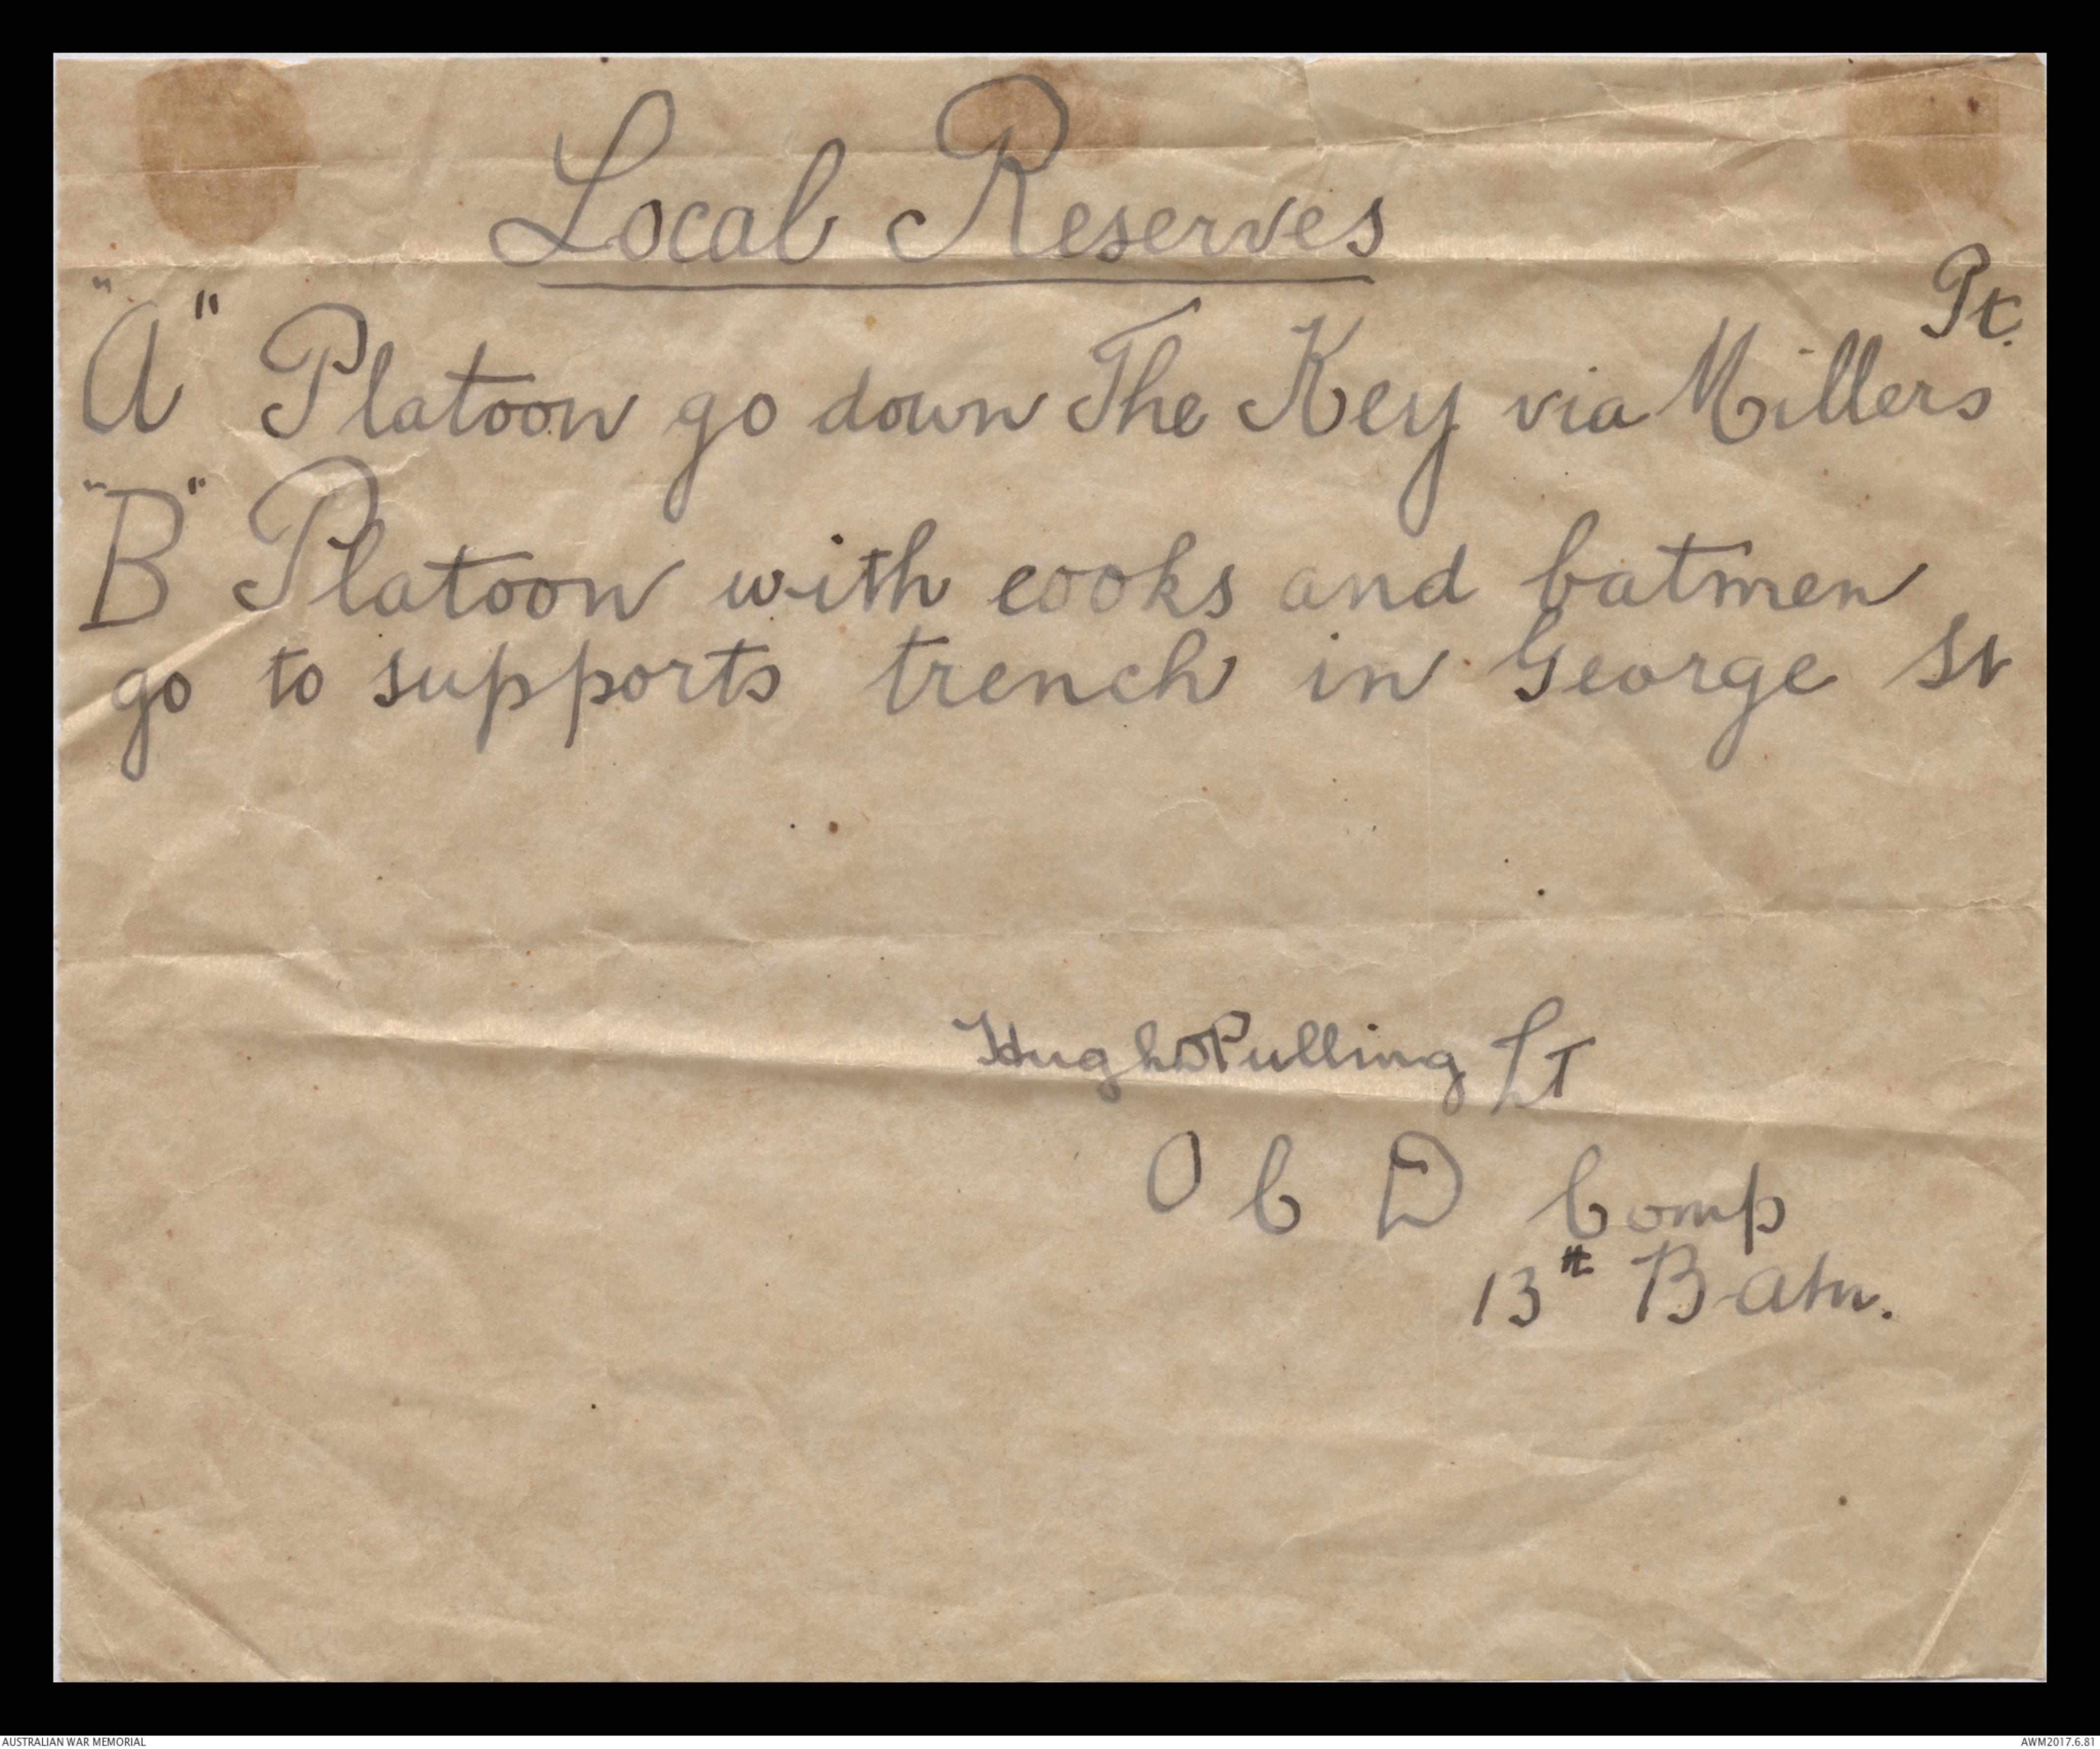 Local Reserves
"A" Platoon go down The Key via Millers Pt.
"B" Platoon with cooks and batmen
go to supports trench in George St
Hugh S Pulling Lt
O C D Comp
13th Batn.
AUSTRALIAN WAR MEMORIAL
AWM2017.6.81